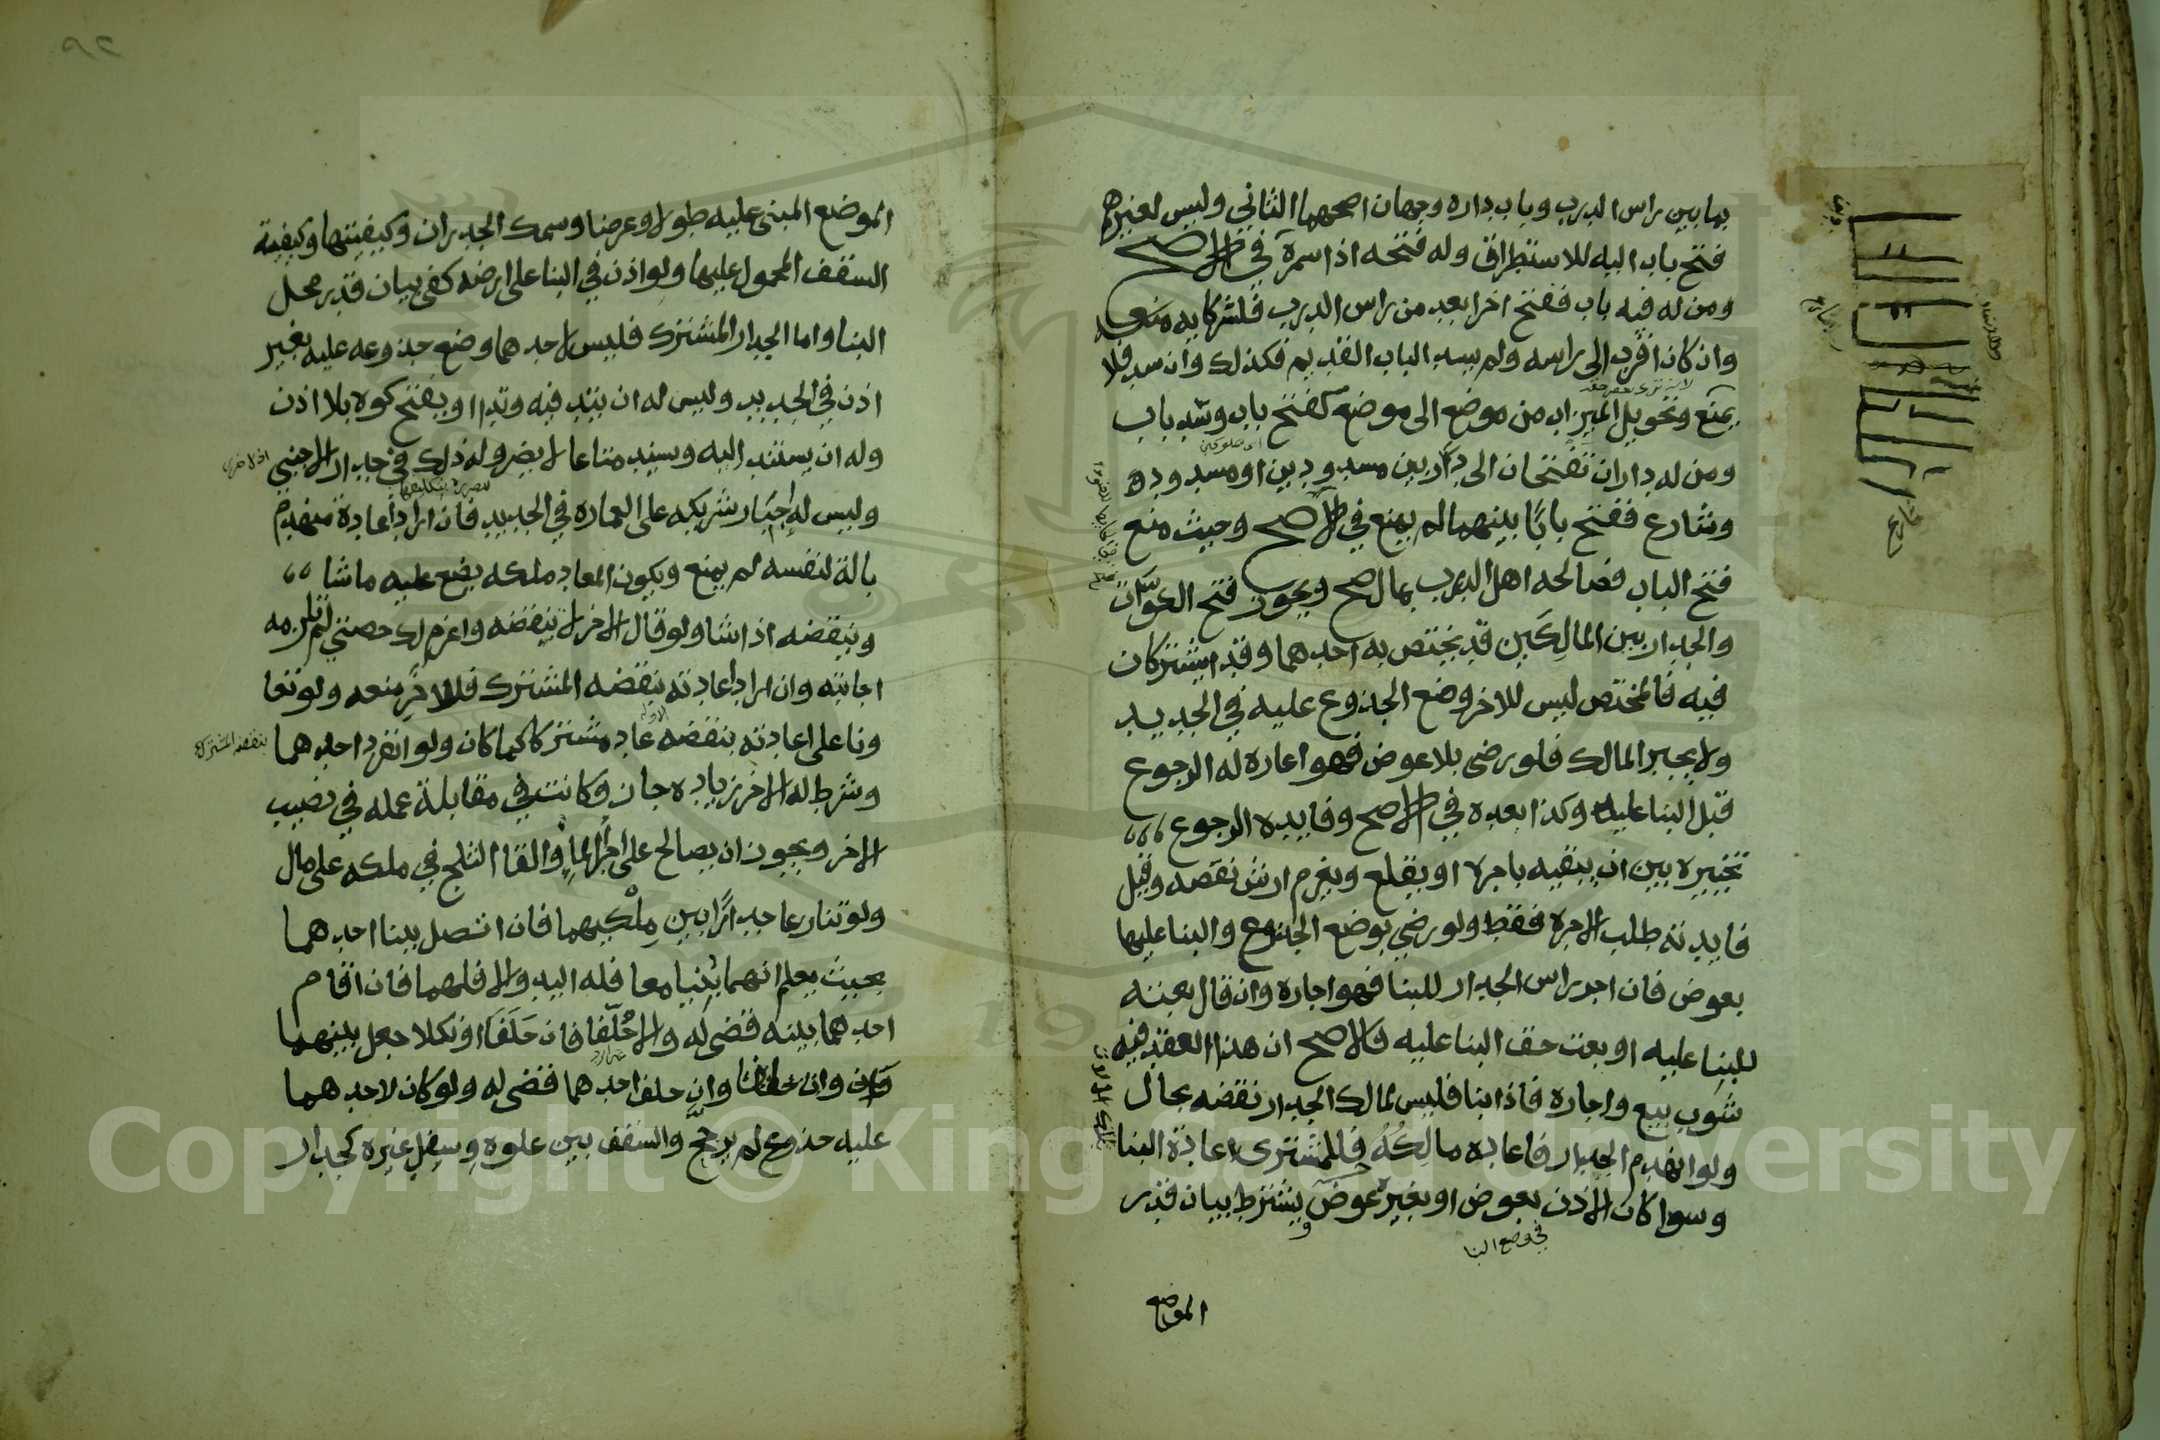 بما بين راس الدرب وباب داره وجهان اصحهما الثاني وليس لغيرهم
فتح باب اليه للاستطراق وله فتحه اذا سمره في الاصح
ومن له فيه باب ففتح اخر ابعد من راس الدرب فلشركايه منعه
وان كان اقرب الى راسه ولم يسد الباب القديم فكذلك وان سد فلا
يمنع وتحويل الميزاب من موضع الى موضع كفتح باب وسد باب
ومن له داران تفتحان الى دربين مسدودين او مسدود
وشارع ففتح بابًا بينهما لم يمنع في الاصح وحيث منع
فتح الباب فصالحه اهل الدرب بمال صح ويجوز فتح الكوات
والجدار بين المالكين قد يختص به احدهما وقد يشتركان
فيه فالمختص ليس للاخر وضع الجذوع عليه في الجديد
ولا يجبر المالك فلو رضى بلا عوض فهو اعارة له الرجوع
قبل البنا عليه وكذا بعده في الاصح وفايدة الرجوع
تخييره بين ان يبقيه باجرة او يقلع ويغرم ارش نقصه وقيل
فايدته طلب الاجرة فقط ولو رضي بوضع الجذوع والبنا عليها
بعوض فان اجر راس الجدار للبنا فهو اجارة وان قال بعته
للبنا عليه او بعت حق البنا عليه فالاصح ان هذا العقد فيه
شوب بيع واجاره فاذا بنا فليس لمالك الجدار نقضه بحال
ولو انهدم الجدار فاعاده مالكه فللمشتري اعادة البنا
وسوا كان الاذن بعوض او بغير عوض يشترط بيان قدر
في وضع البنا
الموضع
الموضع المبني عليه طولا وعرضا وسمك الجدران وكيفيتها وكيفية
السقف المحمول عليها ولو اذن في البنا على ارضه كفى بيان قدر محل
البنا واما الجدار المشترك فليس لاحدهما وضع جذوعه عليه بغير
اذن في الجديد وليس له ان يتد فيه وتدا او يفتح كوه بلا اذن
وله ان يستند اليه ويسند متاعا لا يضر وله ذلك في جدار الاجنبي
وليس له اجبار شريكه على العمارة في الجديد فان اراد اعادة منهدم
بالة لنفسه لم يمنع ويكون المعاد ملكه يضع عليه ما شا
وينقضه اذا شا ولو قال الاخر لا تنقضه واغرم لك حصتي لم تلزمه
اجابته وان اراد اعادته بنقضه المشترك فللاخر منعه ولو تعا
ونا على اعادته بنقضه عاد مشتركا كما كان ولو انفرد احدهما
بنقضه المشترك
وشرط له الاخر زيادة جاز وكانت في مقابلة عمله في نصيب
الاخر ويجوز ان يصالح على اجرا الما والقا الثلج في ملكه على مال
ولو تنازعا جدارًا بين ملكيهما فان اتصل ببنا احدهما
بحيث يعلم انهما بنيا معا فله اليد والا فلهما فان اقام
احدهما بينة قضى له والا حلفا فان حلفا او نكلا جعل بينهما
وان حلف احدهما قضى له ولو كان لاحدهما
عليه جذوع لم يرجح والسقف بين علوه وسفل غيره كجدار
Copyright © King Saud University